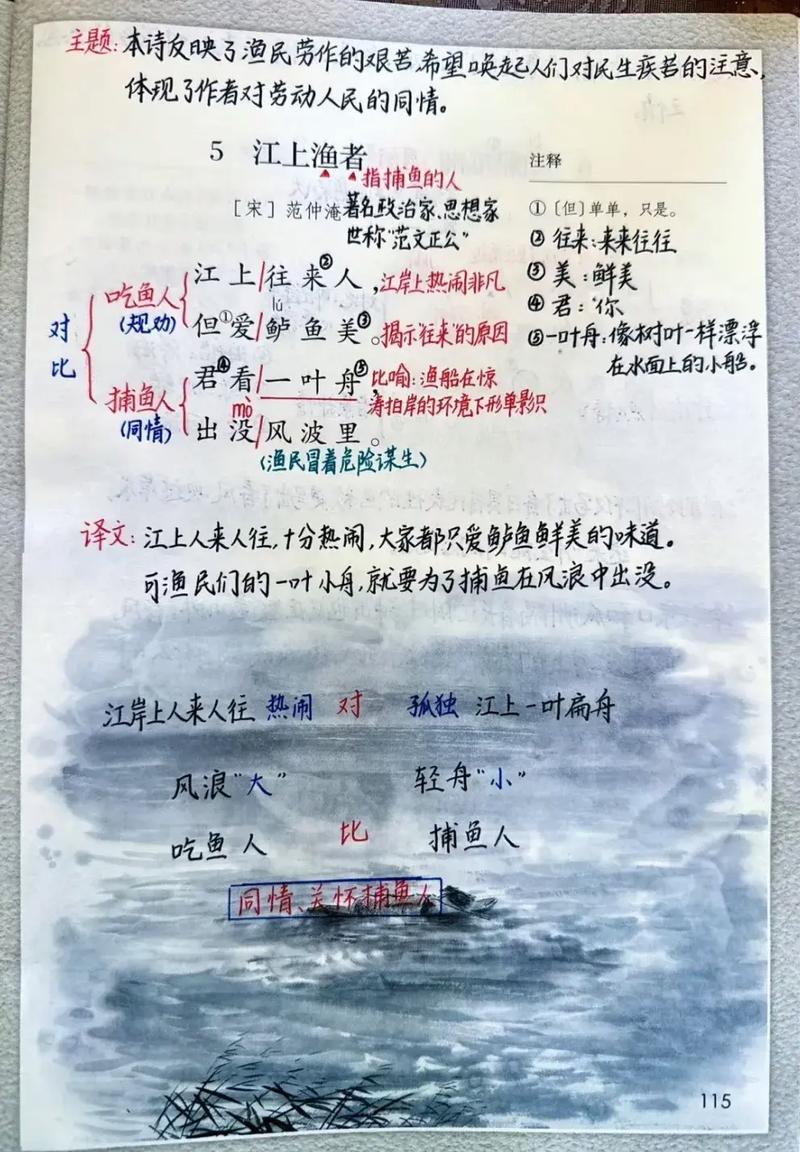 主题:本诗反映了渔民劳作的艰苦,希望唤起人们对民生疾苦的注意,
体现了作者对劳动人民的同情。
5 江上渔者
指捕鱼的人
[宋] 范仲淹
著名政治家、思想家
世称“范文正公”
对比
吃鱼人
(规劝)
捕鱼人
(同情)
江上/往来②人,江岸上热闹非凡
lú
但①爱/鲈鱼美③。揭示“往来”的原因
君④看/一叶舟⑤,比喻:渔船在惊
涛拍岸的环境下形单影只
mò
出没/风波里。
(渔民冒着危险谋生)
注释
①〔但〕单单,只是。
②往来:来来往往
③美:鲜美
④君:你
⑤一叶舟:像树叶一样漂浮
在水面上的小船。
译文:江上人来人往,十分热闹,大家都只爱鲈鱼鲜美的味道。
可渔民们的一叶小舟,就要为了捕鱼在风浪中出没。
江岸上人来人往 热闹 对 孤独 江上一叶扁舟
风浪“大” 轻舟“小”
吃鱼人 比 捕鱼人
同情、关怀捕鱼人
115